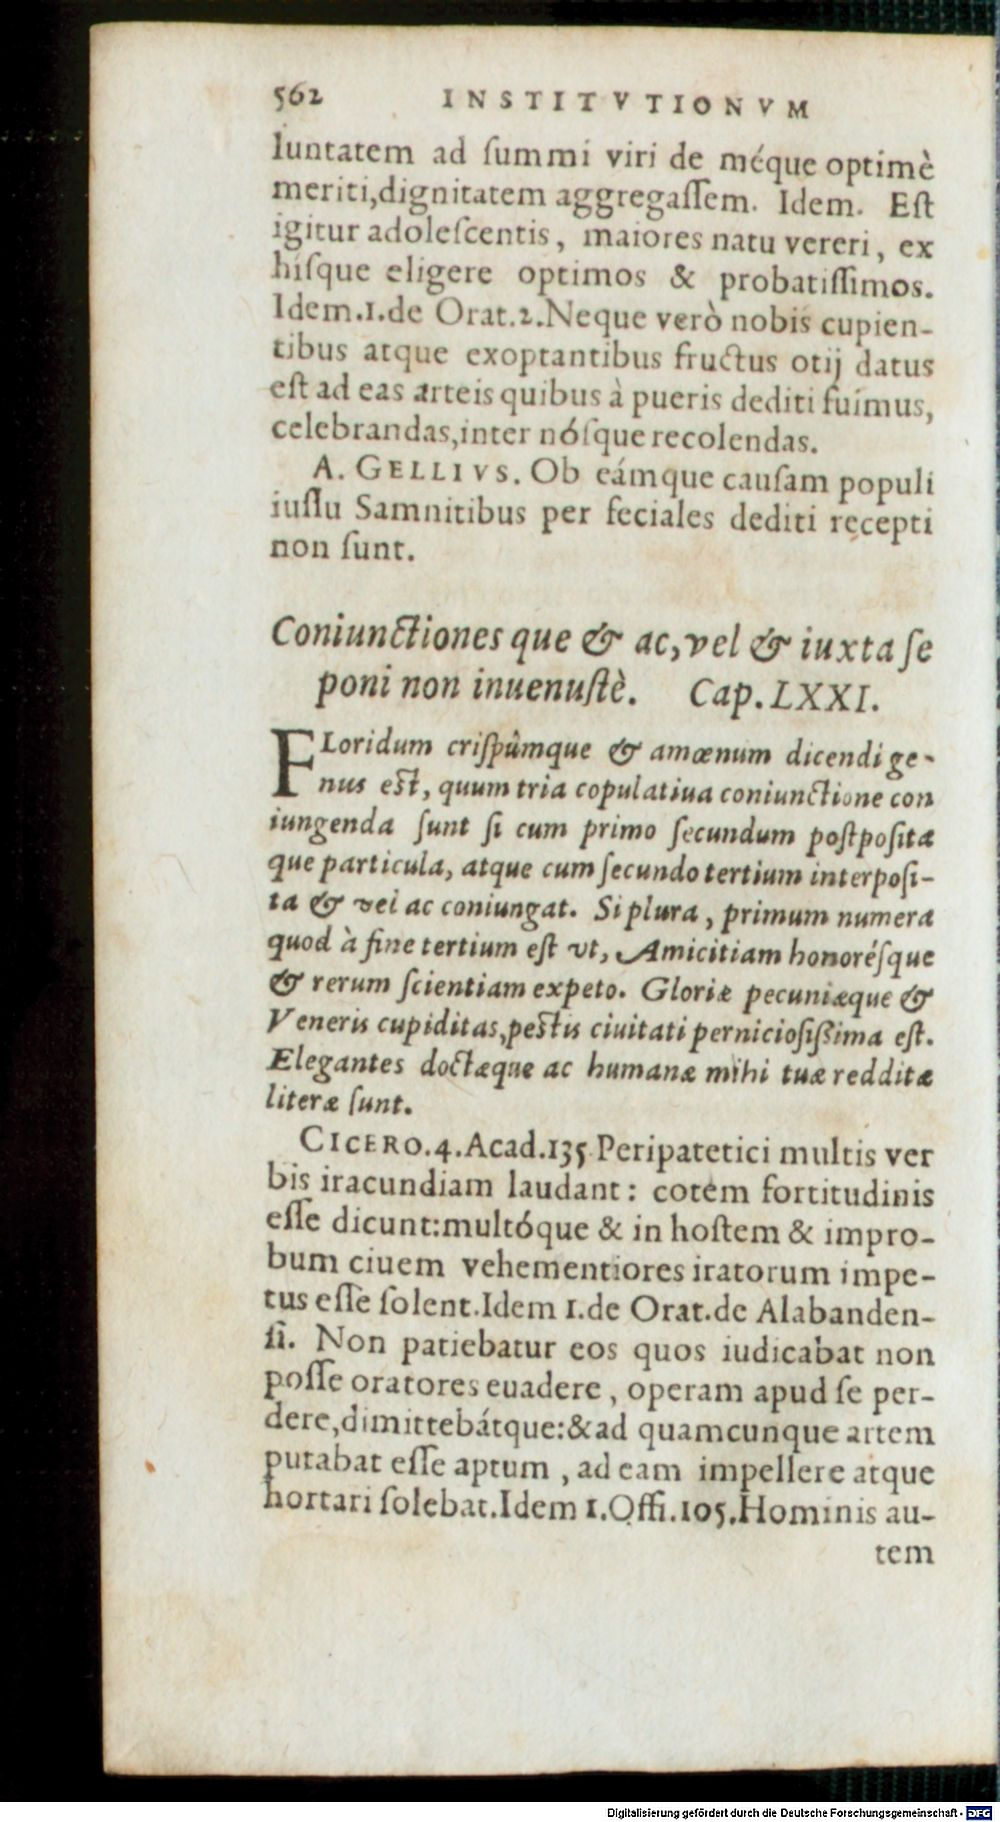 562 INSTITVTIONVM
luntatem ad ſummi viri de méque optimè
meriti,dignitatem aggregaſſem. Idem. Eſt
igitur adoleſcentis, maiores natu vereri, ex
hiſque eligere optimos & probatiſſimos.
Idem.1.de Orat.2.Neque verò nobis cupien-
tibus atque exoptantibus fructus otij datus
eſt ad eas arteis quibus à pueris dediti fuimus,
celebrandas,inter nóſque recolendas.
A. GELLIVS. Ob eámque cauſam populi
iuſſu Samnitibus per feciales dediti recepti
non ſunt.
Coniunctiones que & ac, vel & iuxta ſe
poni non inuenuſtè. Cap. LXXI.
FLoridum criſpûmque & amœnum dicendi ge-
nus eſt, quum tria copulatiua coniunctione con
iungenda ſunt ſi cum primo ſecundum poſtpoſita
que particula, atque cum ſecundo tertium interpoſi-
ta & vel ac coniungat. Si plura, primum numera
quod à fine tertium eſt vt, Amicitiam honoréſque
& rerum ſcientiam expeto. Gloriæ pecuniæque &
Veneris cupiditas,peſtis ciuitati pernicioſißima eſt.
Elegantes doctæque ac humanæ mihi tuæ redditæ
literæ ſunt.
CICERO.4.Acad.135 Peripatetici multis ver
bis iracundiam laudant: cotem fortitudinis
eſſe dicunt:multóque & in hoſtem & impro-
bum ciuem vehementiores iratorum impe-
tus eſſe ſolent.Idem 1.de Orat.de Alabanden-
ſi. Non patiebatur eos quos iudicabat non
poſſe oratores euadere, operam apud ſe per-
dere,dimittebátque:&ad quamcunque artem
putabat eſſe aptum, ad eam impellere atque
hortari ſolebat.Idem 1.Offi.105.Hominis au-
tem
Digitalisierung gefördert durch die Deutsche Forschungsgemeinschaft - DFG